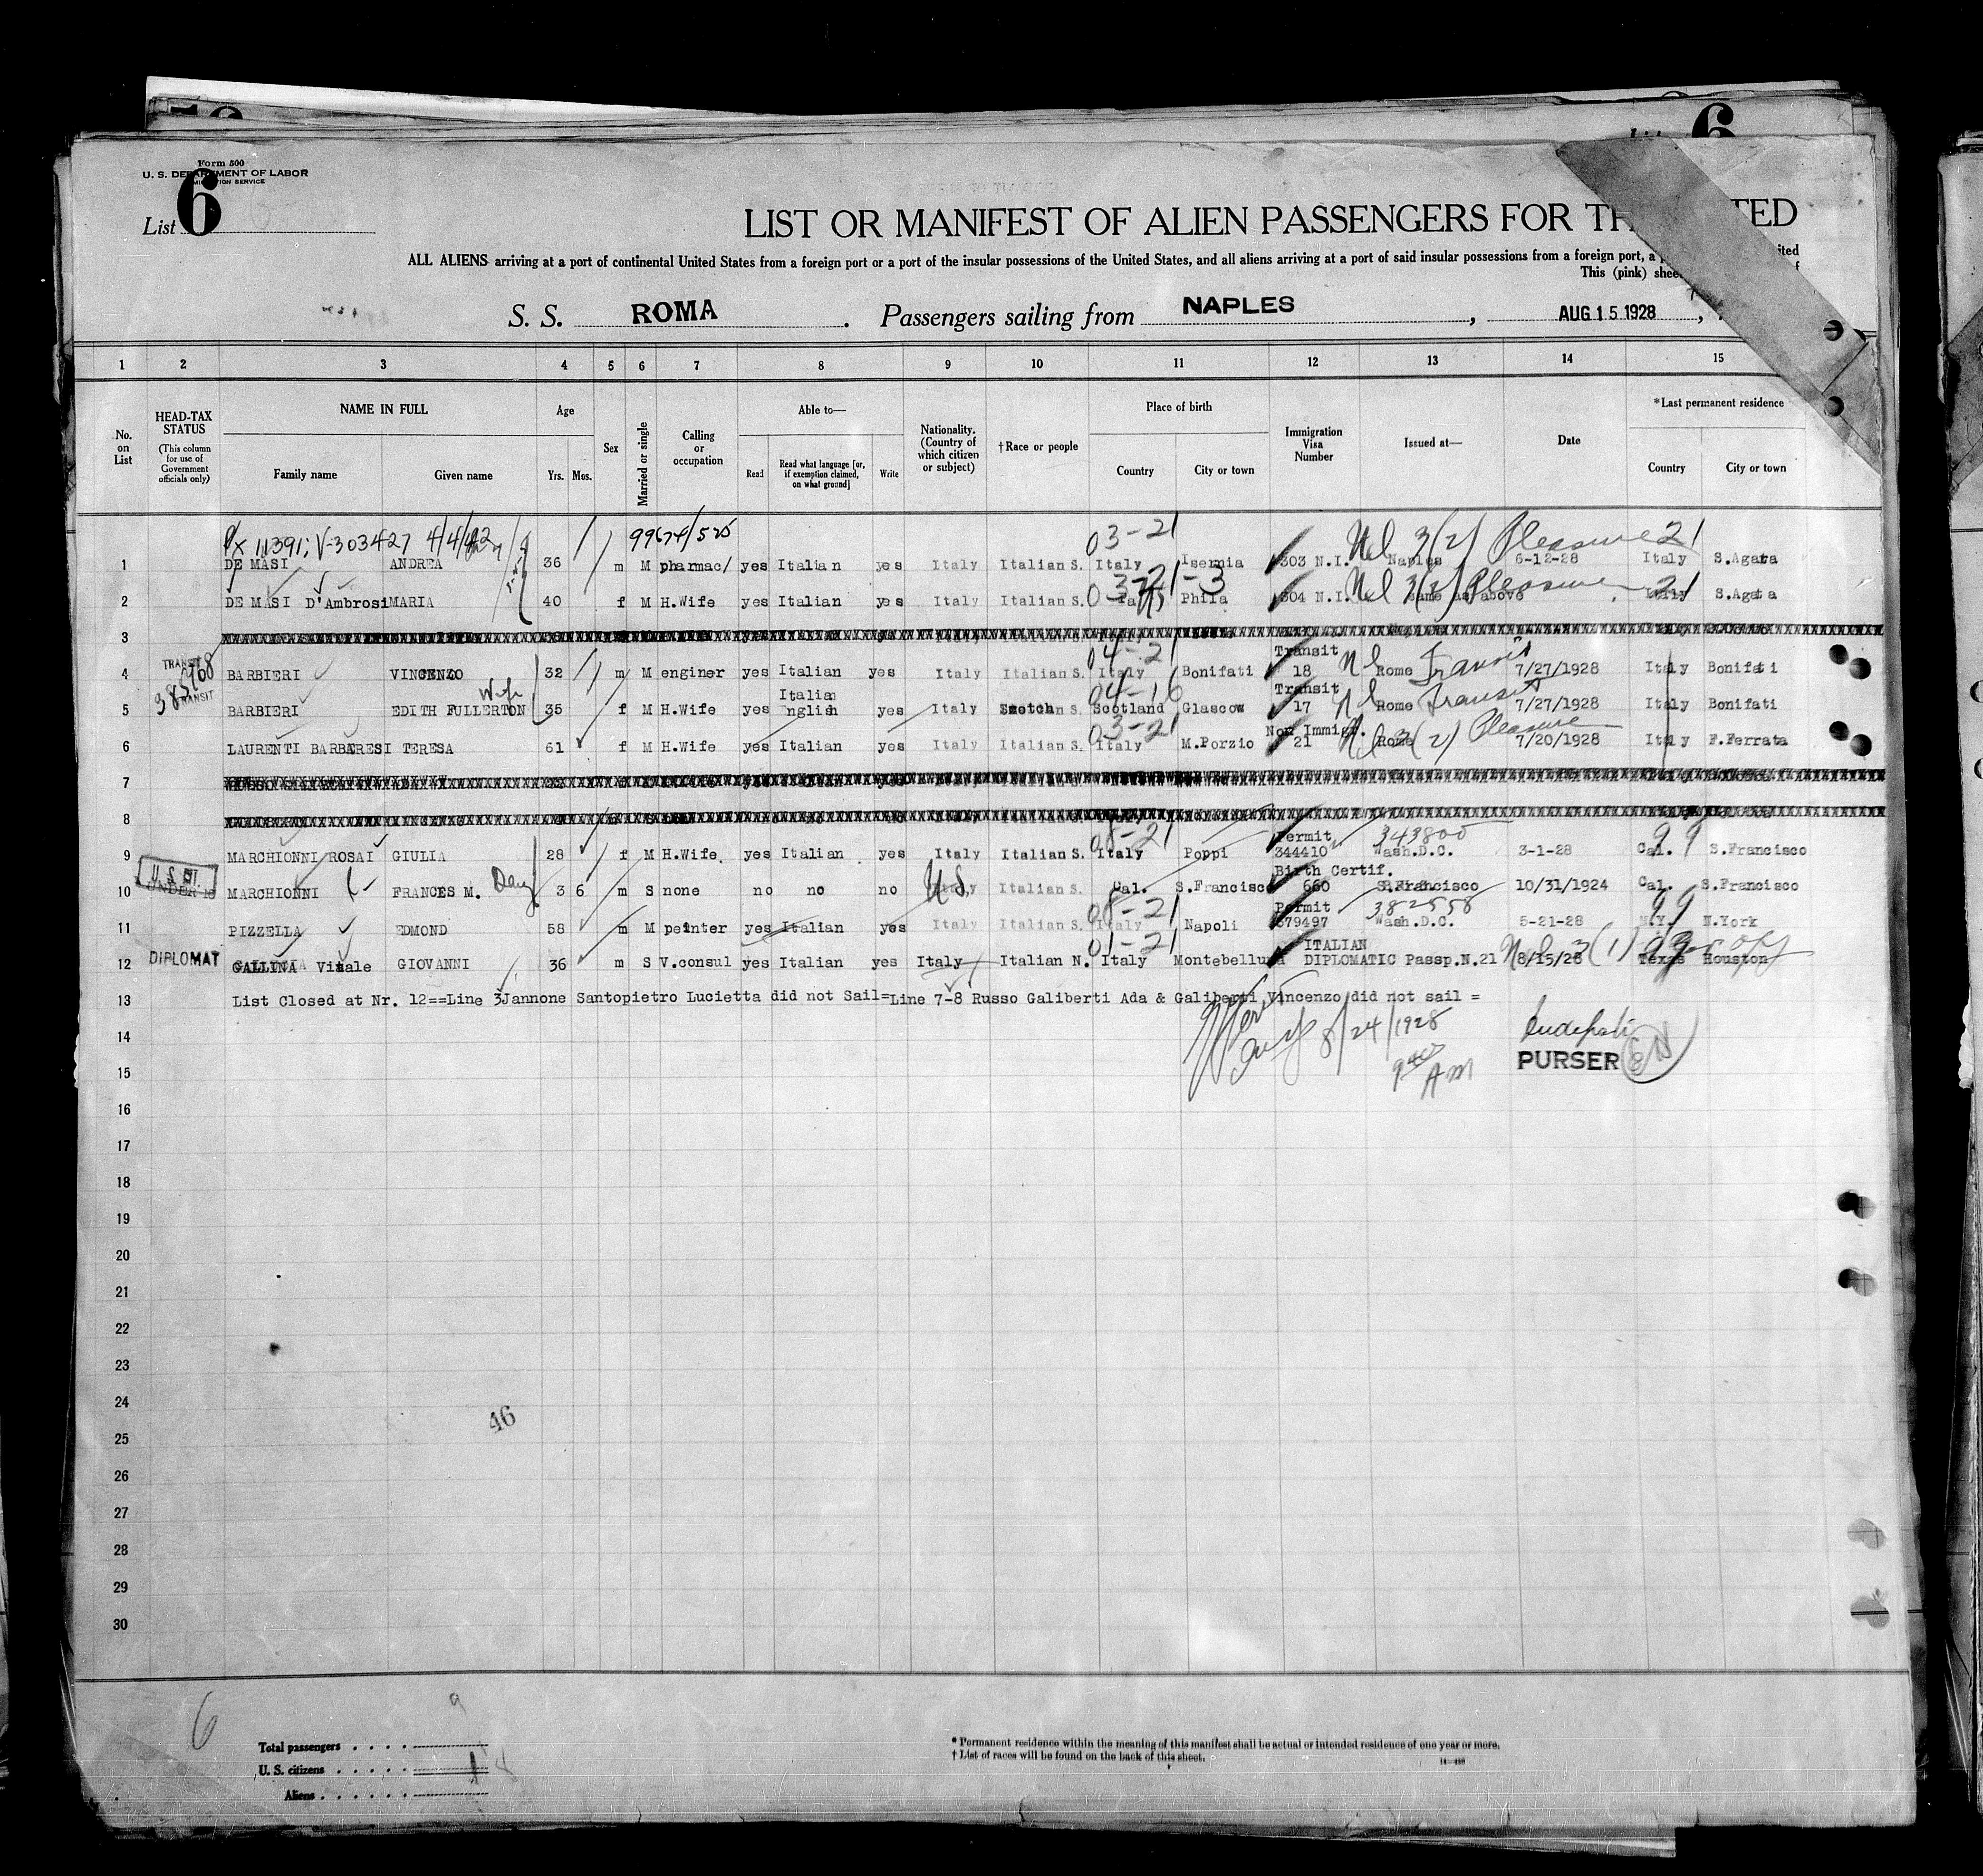 Form 500
U. S. DEPARTMENT OF LABOR
List 6
LIST OR MANIFEST OF ALIEN PASSENGERS FOR TH TED
ALL ALIENS arriving at a port of continental United States from a foreign port or a port of the insular possessions of the United States, and all aliens arriving at a port of said insular possessions from a foreign port, a
This (pink) shee
S. S. ROMA. Passengers sailing from NAPLES, AUG 15 1928,
1 2 3 4 5 6 7 8 9 10 11 12 13 14 15
No. on List
HEAD-TAX STATUS
(This column for use of Government officials only)
NAME IN FULL
Family name Given name
Age
Yrs. Mos.
Sex
Married or single
Calling or occupation
Able to—
Read Read what language [or, if exemption claimed, on what ground] Write
Nationality. (Country of which citizen or subject)
†Race or people
Place of birth
Country City or town
Immigration Visa Number
Issued at—
Date
*Last permanent residence
Country City or town
11391; V-303427 4/4/42 99674/525 03-21
1 DE MASI ANDREA 36 m M pharmac/ yes Italian yes Italy Italian S. Italy Isernia 303 N.I. Naples 3(2) Pleasure 6-12-28 21 Italy S.Agata
2 DE MASI D'Ambrosi MARIA 40 f M H.Wife yes Italian yes Italy Italian S. Phila 304 N.I. 3(2) Pleasure same as above 21 Italy S.Agata
3
TRANSIT 04-21 Transit
4 BARBIERI VINCENZO 32 m M enginer yes Italian yes Italy Italian S. Italy Bonifati 18 Rome Transit 7/27/1928 Italy Bonifati
TRANSIT Wife Italian 04-16 Transit
5 BARBIERI EDITH FULLERTON 35 f M H.Wife yes English yes Italy Scotch Scotland Glascow 17 Rome Transit 7/27/1928 Italy Bonifati
03-21 Non Immigr.
6 LAURENTI BARBARESI TERESA 61 f M H.Wife yes Italian yes Italy Italian S. Italy M.Porzio 21 Rome 3(2) Pleasure 7/20/1928 Italy F.Ferrata
7
8
Permit 343800 99
9 MARCHIONNI ROSAI GIULIA 28 f M H.Wife. yes Italian yes Italy Italian S. Italy Poppi 344410 Wash.D.C. 3-1-28 Cal. S.Francisco
U.S. Birth Certif.
10 UNDER 16 MARCHIONNI FRANCES M. 3 6 m S none no no no U.S. Italian S. Cal. S.Francisco 660 S.Francisco 10/31/1924 Cal. S.Francisco
Permit 382558 99
11 PIZZELLA EDMOND 58 m M peinter yes Italian yes Italy Italian S. Italy Napoli 379497 Wash.D.C. 5-21-28 N.Y. N.York
01-21 ITALIAN
12 DIPLOMAT GALLINA Vinale GIOVANNI 36 m S V.consul yes Italian yes Italy Italian N. Italy Montebelluna DIPLOMATIC Passp.N.21 8/15/28 3(1) Texas Houston
13 List Closed at Nr. 12==Line 3Jannone Santopietro Lucietta did not Sail=Line 7-8 Russo Galiberti Ada & Galiberti Vincenzo did not sail =
14 8/24/1928
PURSER
15 9 40 AM
16
17
18
19
20
21
22
23
24
46
25
26
27
28
29
30
6 9
Total passengers
U. S. citizens
Aliens
* Permanent residence within the meaning of this manifest shall be actual or intended residence of one year or more.
† List of races will be found on the back of this sheet.